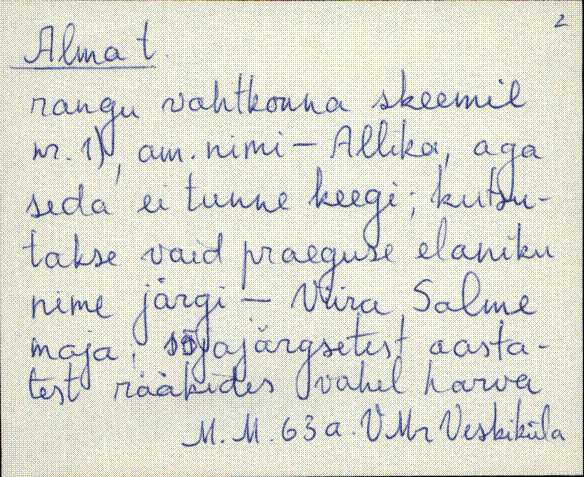 2
Alma t.
rangu vahtkonna skeemil
nr. 1), am. nimi – Allika, aga
seda ei tunne keegi; kutsu-
takse vaid praeguse elaniku
nime järgi – Viira Salme
maja; sõjajärgsetest aasta-
test rääkides vahel harva
M. M. 63 a. VMr Veskiküla